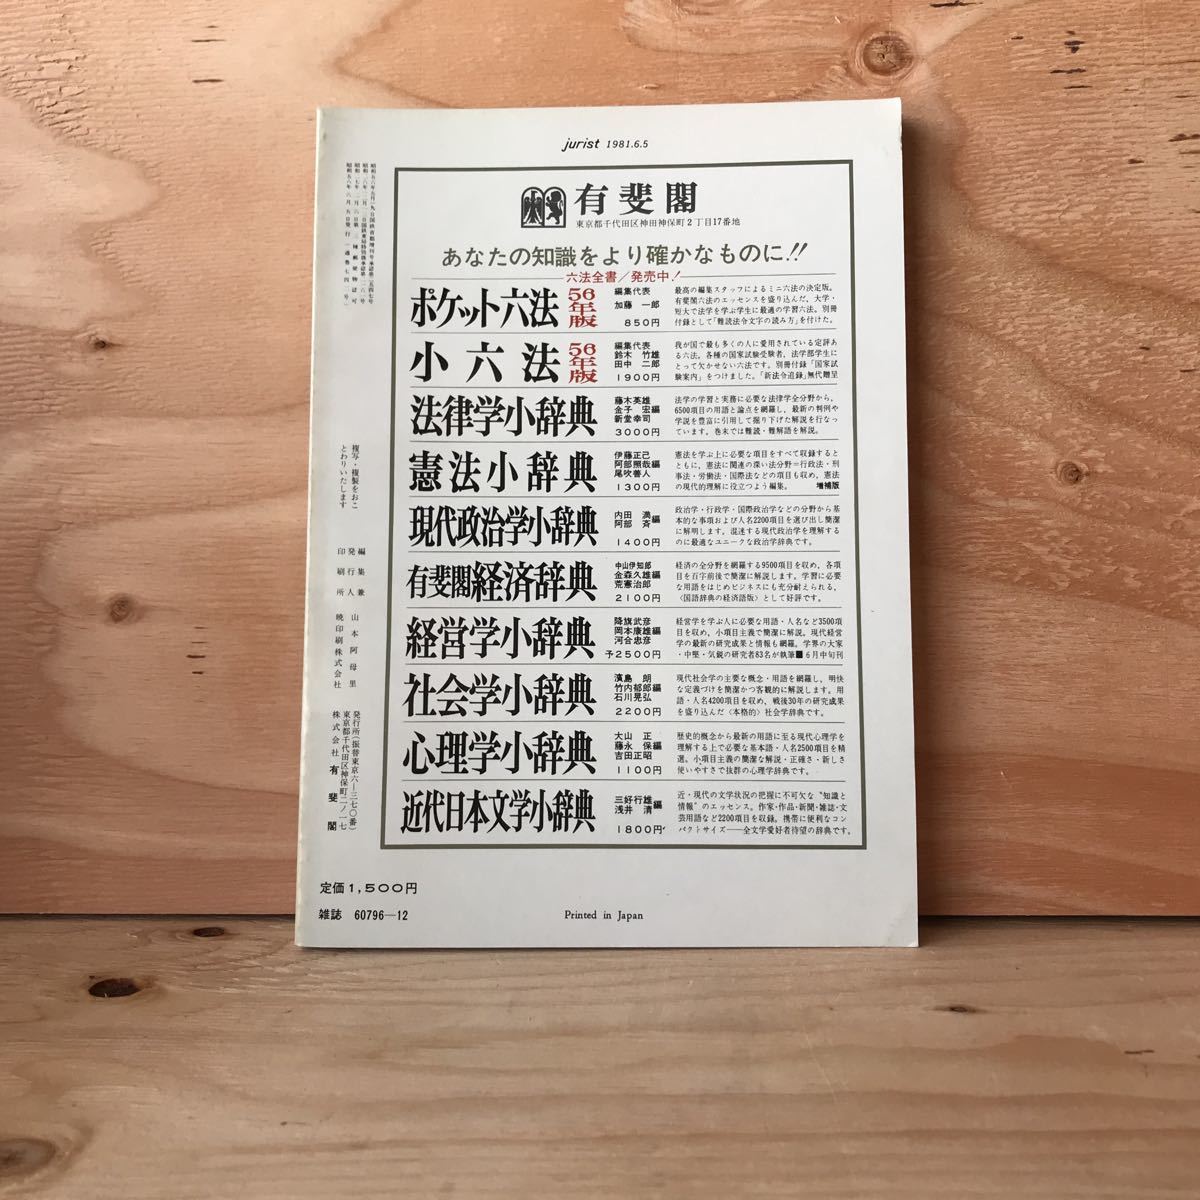 jurist 1981.6.5
有斐閣
東京都千代田区神田神保町2丁目17番地
あなたの知識をより確かなものに!!
六法全書/発売中!
ポケット六法 56年版
編集代表
加藤一郎
850円
最高の編集スタッフによるミニ六法の決定版。
有斐閣六法のエッセンスを盛り込んだ、大学・
短大で法学を学ぶ学生に最適の学習六法。別冊
付録として「難読法令文字の読み方」を付けた。
小六法 56年版
編集代表
鈴木竹雄
田中二郎
1900円
我が国で最も多くの人に愛用されている定評あ
る六法。各種の国家試験受験者、法学部学生に
とって欠かせない六法です。別冊付録「国家試
験案内」をつけました。「新法令追録」無代贈呈
法律学小辞典
藤木英雄
金子宏編
新堂幸司
3000円
法学の学習と実務に必要な法律学全分野から、
6500項目の用語と論点を網羅し、最新の判例や
学説を豊富に引用して掘り下げた解説を行なっ
ています。巻末では難読・難解語を解説。
憲法小辞典
伊藤正己
阿部照哉編
尾吹善人
1300円
憲法を学ぶ上に必要な項目をすべて収録すると
ともに、憲法に関連の深い法分野=行政法・刑
事法・労働法・国際法などの項目も収め、憲法
の現代的理解に役立つよう編集。 増補版
現代政治学小辞典
内田満
阿部斉
編
1400円
政治学・行政学・国際政治学などの分野から基
本的な事項および人名2200項目を選び出し簡潔
に解明します。混迷する現代政治学を理解する
のに最適なユニークな政治学辞典です。
有斐閣経済辞典
中山伊知郎
金森久雄編
荒憲治郎
2100円
経済の全分野を網羅する9500項目を収め、各項
目を百字前後で簡潔に解説します。学習に必要
な用語をはじめビジネスにも充分耐えられる、
〈国語辞典の経済語版〉として好評です。
経営学小辞典
降旗武彦
岡本康雄編
河合忠彦
予2500円
経営学を学ぶ人に必要な用語・人名など3500項
目を収め、小項目主義で簡潔に解説。現代経営
学の最新の研究成果と情報も網羅。学界の大家
・中堅・気鋭の研究者83名が執筆■6月中旬刊
社会学小辞典
濱島朗
竹内郁郎編
石川晃弘
2200円
現代社会学の主要な概念・用語を網羅し、明快
な定義づけを簡潔かつ客観的に解説します。用
語・人名4200項目を収め、戦後30年の研究成果
を盛り込んだ〈本格的〉社会学辞典です。
心理学小辞典
大山正
藤永保編
吉田正昭
1100円
歴史的概念から最新の用語に至る現代心理学を
理解する上で必要な基本語・人名2500項目を精
選。小項目主義の簡潔な解説・正確さ・新しさ
使いやすさで抜群の心理学辞典です。
近代日本文学小辞典
三好行雄
浅井清
編
1800円
近・現代の文学状況の把握に不可欠な“知識と
情報”のエッセンス。作家・作品・新聞・雑誌・文
芸用語など2200項目を収録。携帯に便利なコン
パクトサイズ――全文学愛好者待望の辞典です。
昭和五六年六月五日発行(通巻七四二号)
複写・複製をおこ
とわりいたします
編集兼
発行人 山本阿母里
印刷所 暁印刷株式会社
発行所(振替東京六―三七〇番)
東京都千代田区神保町二ノ一七
株式会社 有斐閣
定価1,500円
雑誌 60796―12
Printed in Japan